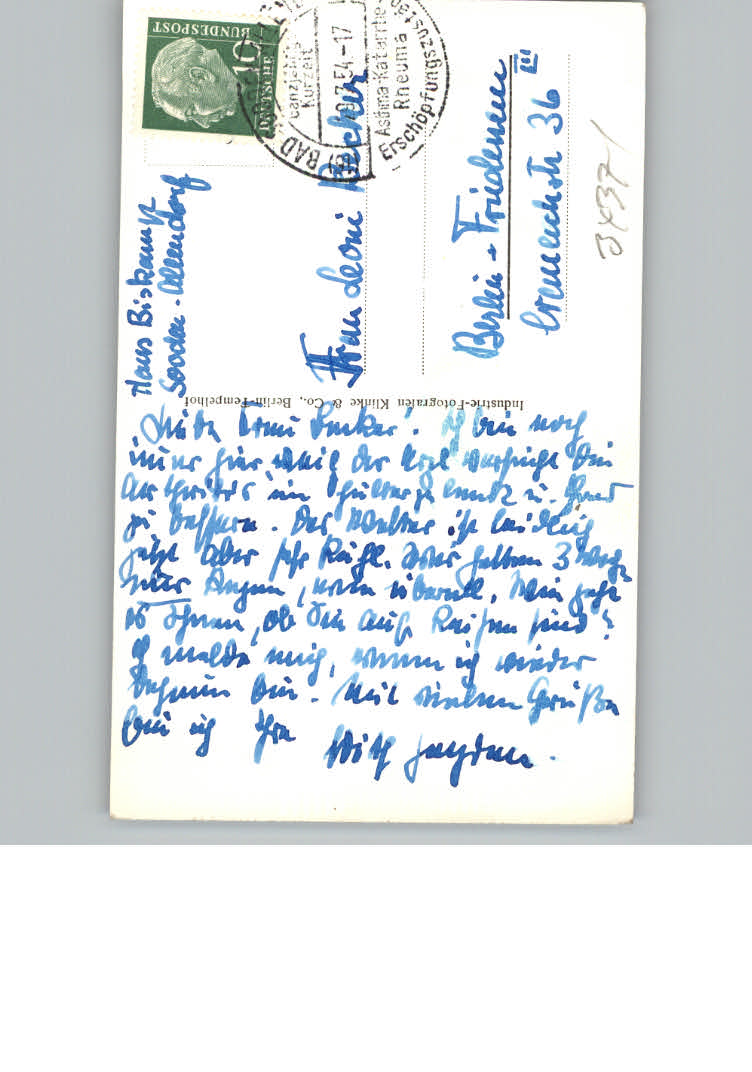 BUNDESPOST
10
BAD
Ganzjährige
Kurzeit
7.54-17
Asthma-Katarrhe
Rheuma
Erschöpfungszustände
Haus Biskamp
Sooden-Allendorf
Frau Leoni
Berlin-Friedenau
36 III
3437/
Industrie-Fotografen Klinke & Co., Berlin-Tempelhof
Liebe Frau ! Ich bin noch
immer hier weil der Arzt versucht die
Arthritis im u. Hand
zu bessern. Das Wetter ist leidlich
jetzt aber sehr kühl. Wir hatten 3
nur Regen, wie überall. Wie geht
es Ihnen, ob Sie auf Reisen sind?
Ich melde mich, wenn ich wieder
daheim bin. Mit vielen Grüßen
bin ich Ihre